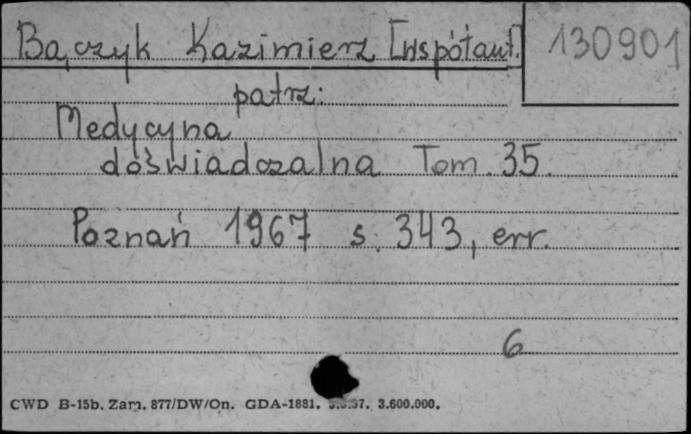 Bączyk Kazimierz [współaut.]
130901
patrz:
Medycyna
doświadczalna Tom. 35.
Poznań 1967 s. 343, err.
6
CWD B-15b. Zam. 877/DW/On. GDA-1881. 3.600.000.